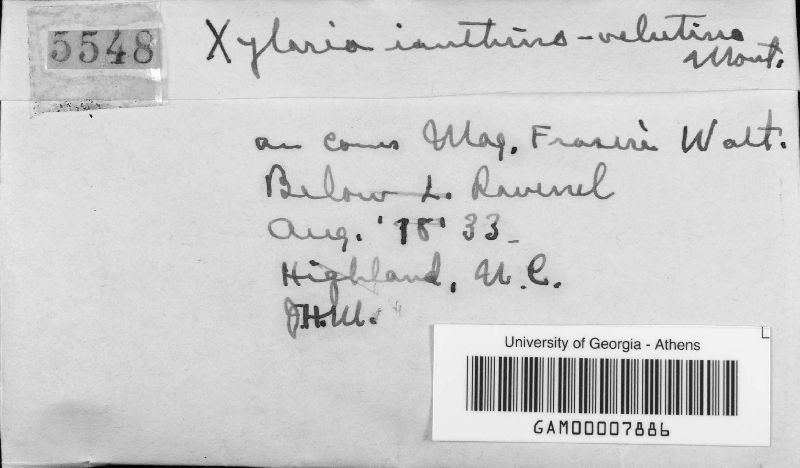 5548
Xylaria ianthino-velutina
Mont.
on cones Mag. Fraseri Walt.
Below L. Ravenel
Aug. '18' 33_
Highland, N.C.
J.H.M.
University of Georgia - Athens
GAM00007886